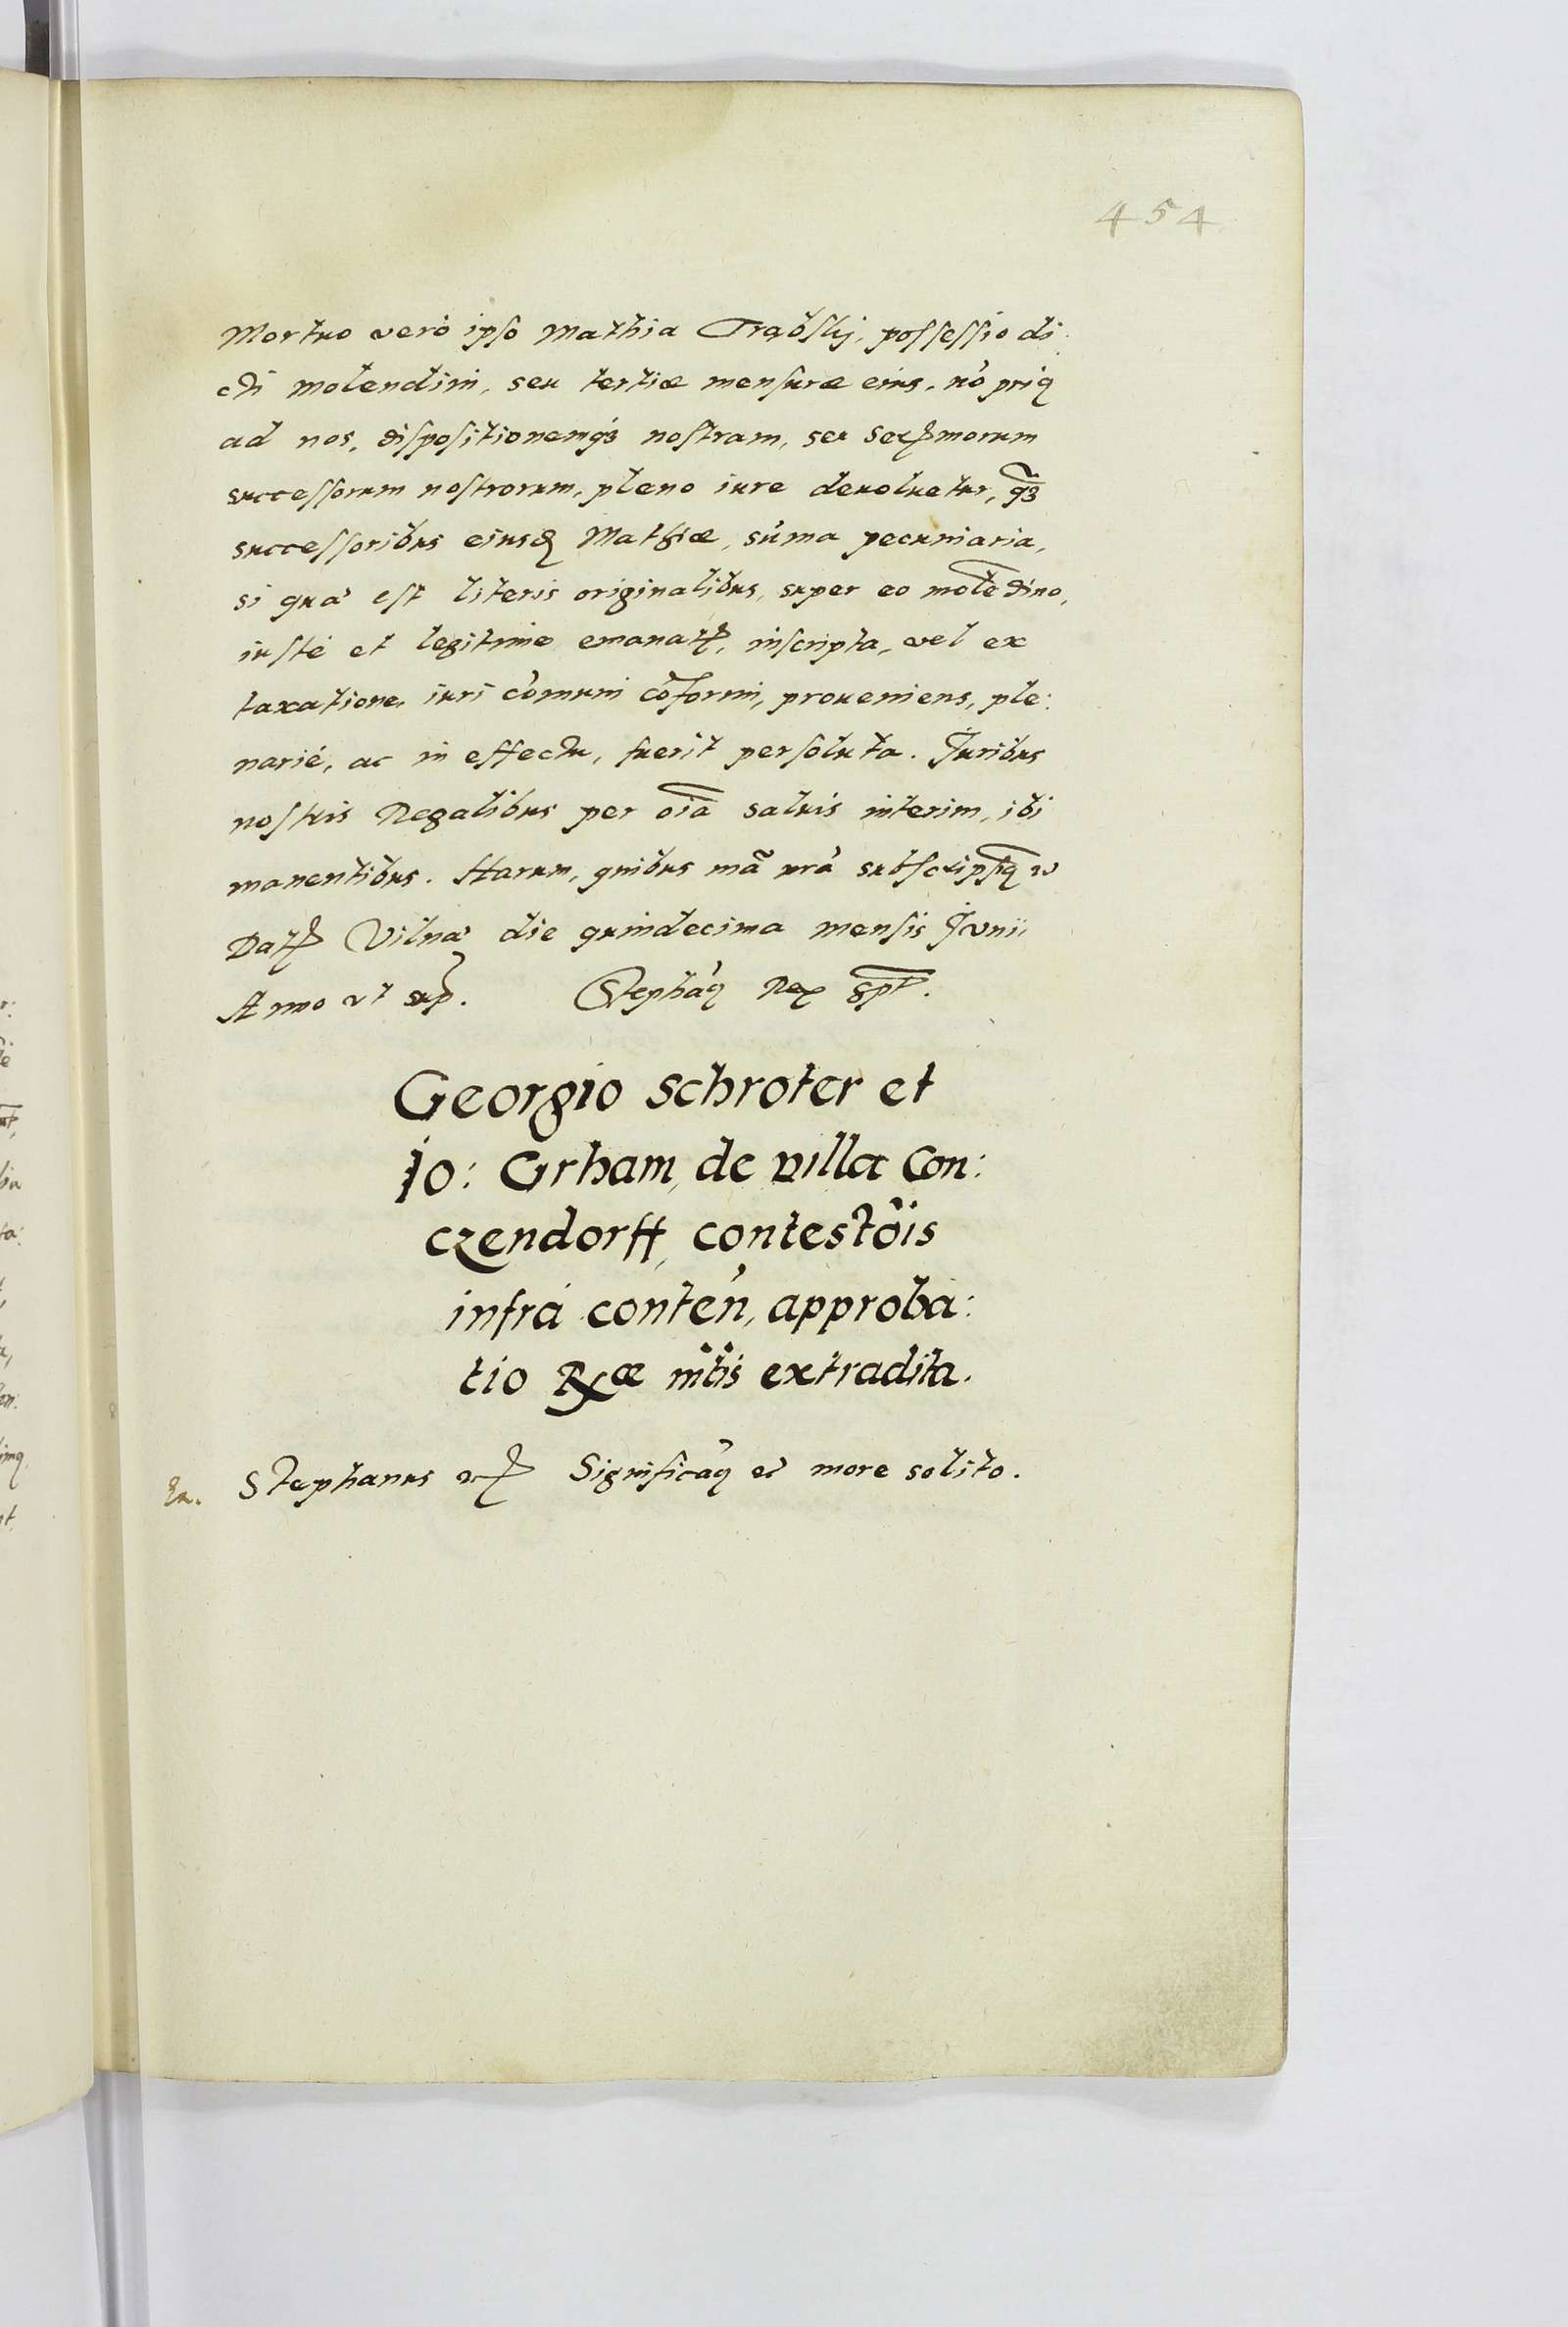 454
Mortuo verò ipso Mathia Trąbsky, possessio di:
cti molendini, seu tertiæ mensuræ eius, nõ priꝰ
ad nos, dispositionemq́ꝫ nostram, seu Serẽmorum
successorum nostrorum, pleno iure deuoluetur, q̃ꝫ
successoribus eiusđ Mathiæ, sum̃a pecuniaria,
si qua est literis originalibus, super eo molẽdino,
iustè et legitime emanatꝭ, inscripta, vel ex
taxatione, iuri com̃uni cõformi, proueniens, ple:
nariè, ac in effectu, fuerit persoluta. Juribus
nostris Regalibus per oĩa saluis interim, ibi
manentibus. Harum, quibus mã nrã subscripsiꝰ etc
Datꝭ Vilnæ die quindecima mensis Junii,
Anno vt sup. Stephãꝰ Rex sspt.
Georgio Schroter et
Jo: Grham, de villa Con:
czendorff, contestõis
infrà conteñ, approba:
tio Rꝫæ mt̃is extradita.
Stephanus etc Significãꝰ etc more solito.